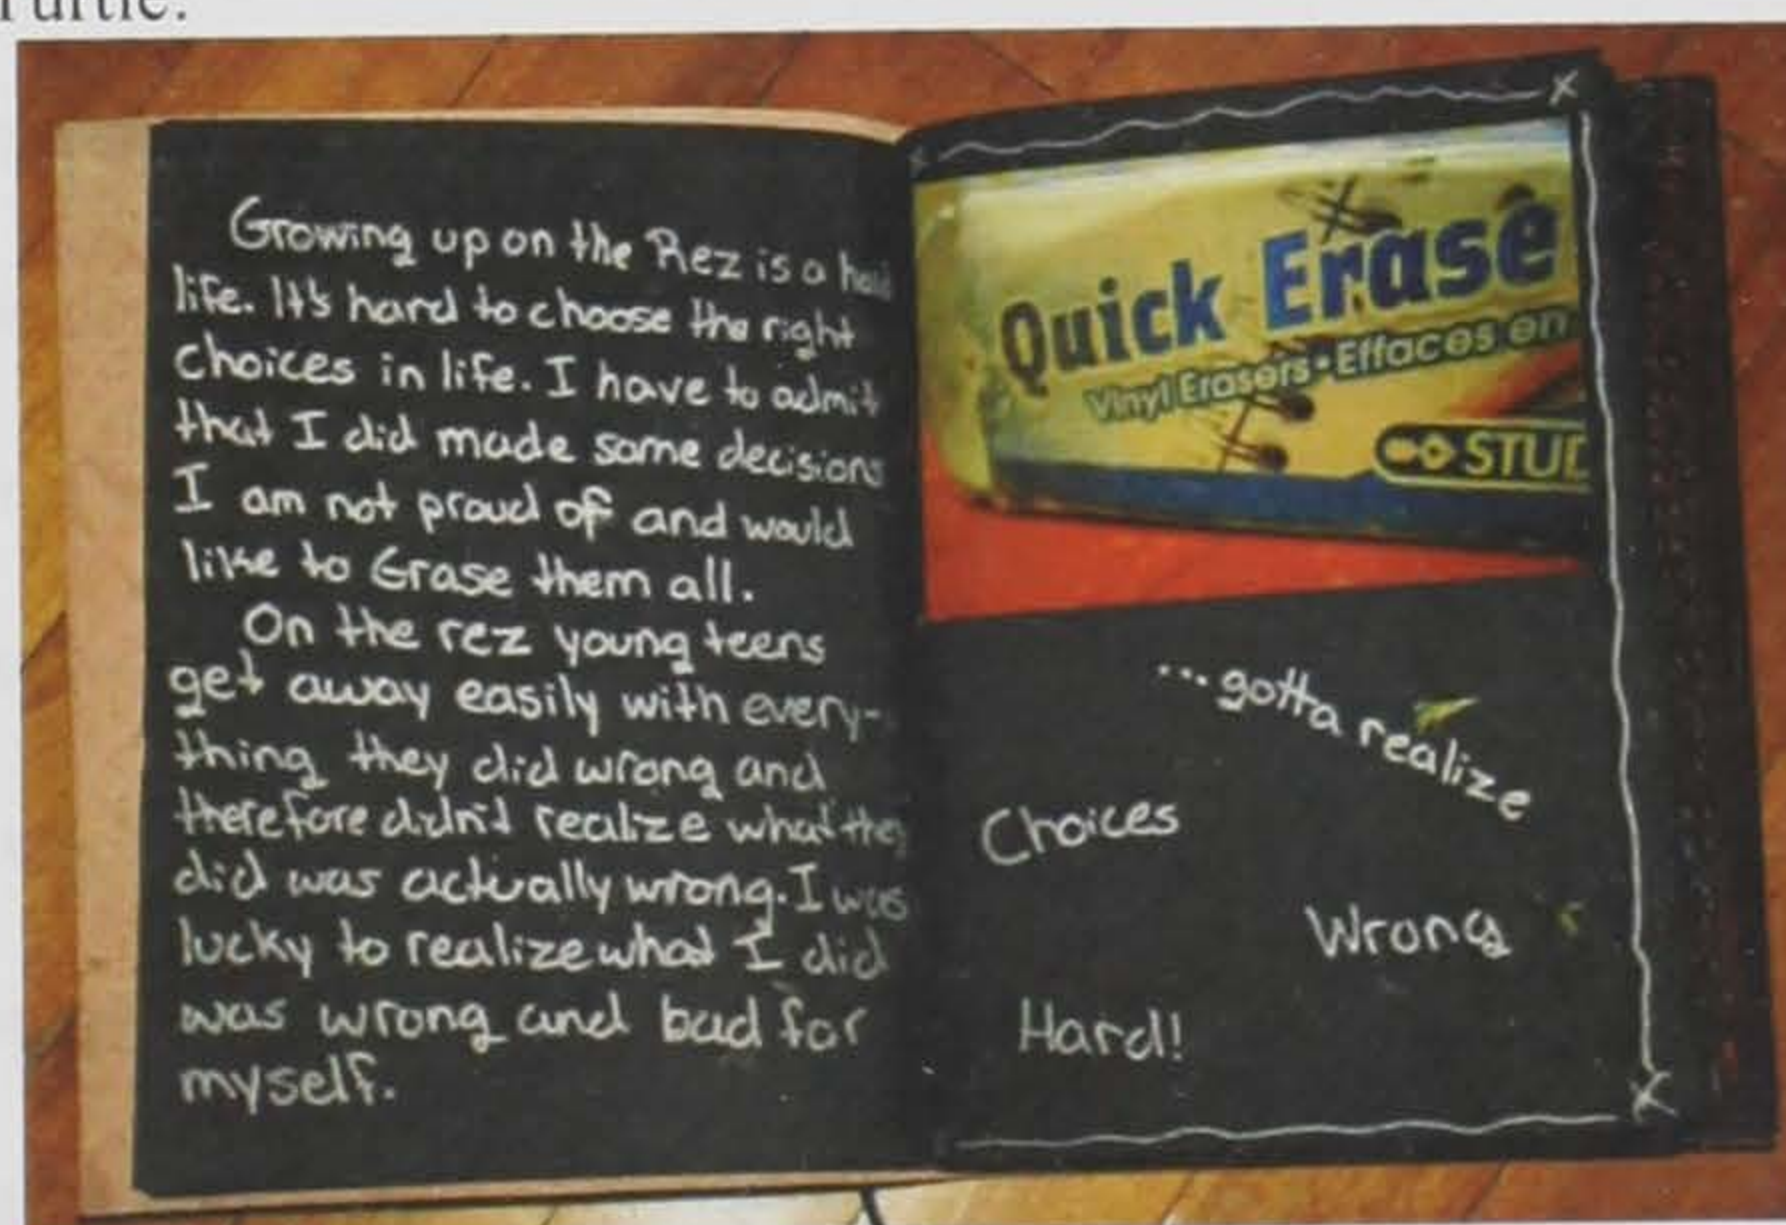 Turtle.
Growing up on the Rez is a hard
life. It's hard to choose the right
choices in life. I have to admit
that I did made some decisions
I am not proud of and would
like to Erase them all.
On the rez young teens
get away easily with every-
thing they did wrong and
therefore didn't realize what they
did was actually wrong. I was
lucky to realize what I did
was wrong and bad for
myself.
Quick Erase
Vinyl Erasers • Effaces en
STUD
...gotta realize
Choices
Wrong
Hard!